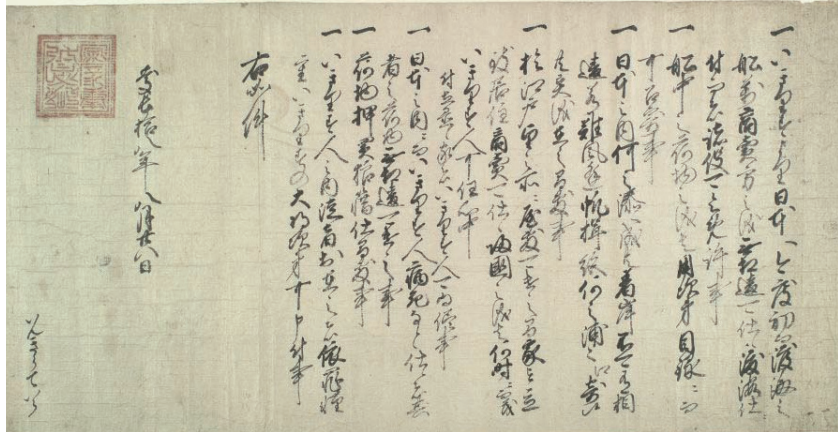 一 いきりすより日本へ今度初而渡海之
船萬商賣方之儀無相違可仕候渡海仕
付而ハ諸役可令免許事
一 船中之荷物之儀ハ用次第目録ニ而
可召寄事
一 日本之内何之湊へ成共着岸不可有相
違若難風逢帆楫絶何之浦々へ寄候
共異儀有之間敷事
一 於江戸望之所ニ屋敷可遣之間家を立
致居住商賣可仕候帰國之儀ハ何時ニ而も
いきりす人可任心中
付立置候家ハいきりす人可為儘事
一 日本之内ニ而いきりす人病死なと仕候者其
者之荷物無相違可遣之事
一 荷物押買狼藉仕間敷事
一 いきりす人之内徒者於有之者依罪軽
重いきりすの大将次第可申付事
右如件
慶長拾八年八月廿八日
いんきらていら